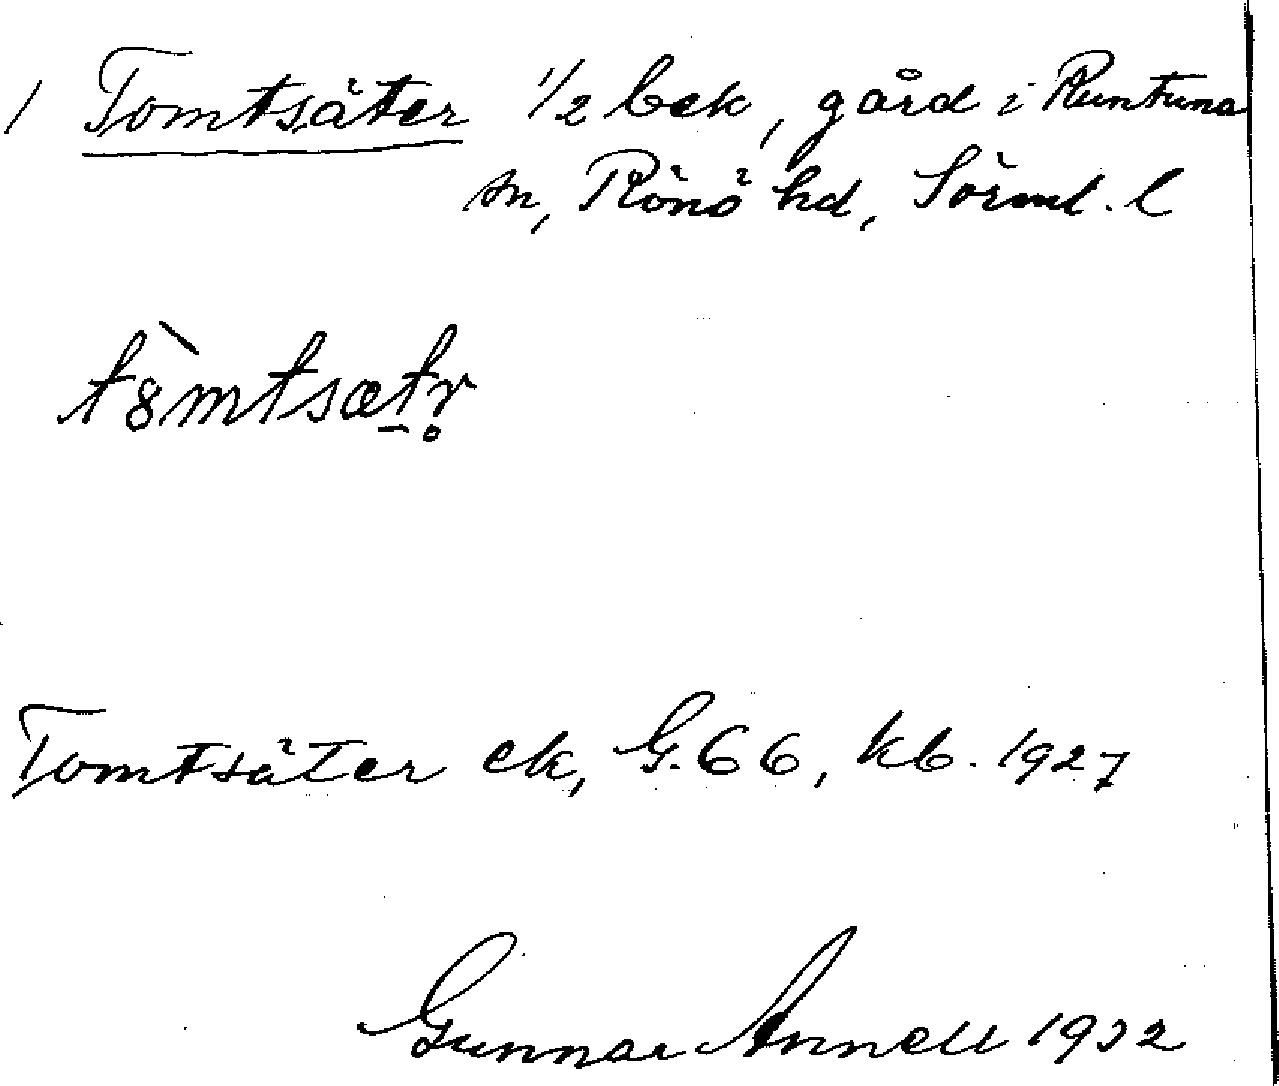 1 Tomtsäter 1/2 bek, gård i Runtuna
sn, Rönö hd, Sörml. l
t8̀mtsætr̥
Tomtsäter ek, G. 66, kb. 1927
Gunnar Annell 1932